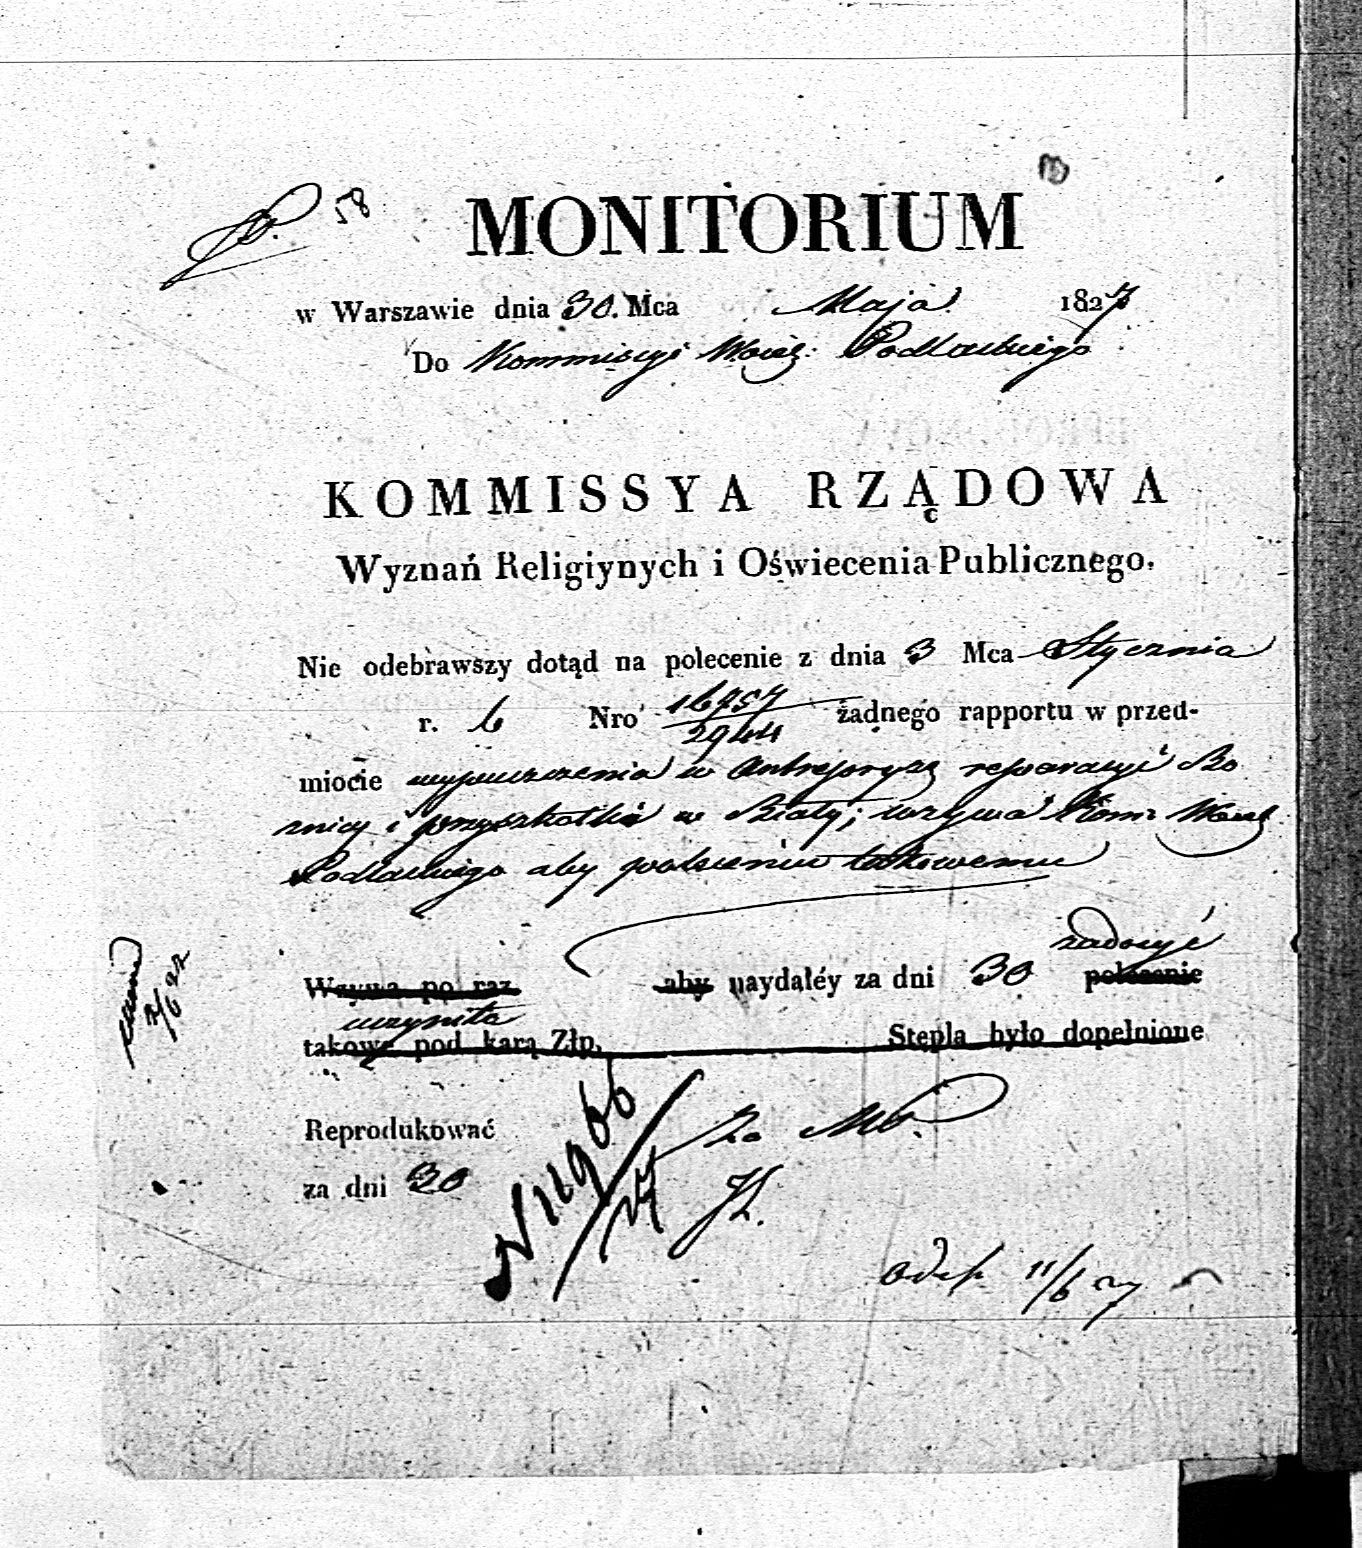 58
MONITORIUM
w Warszawie dnia 30. Mca Maja 1827
Do Kommissyi Woiew: Podlaskiego
KOMMISSYA RZĄDOWA
Wyznań Religiynych i Oświecenia Publicznego.
Nie odebrawszy dotąd na polecenie z dnia 3 Mca Stycznia
r. b Nro 16757/2944 żadnego rapportu w przed-
miocie wypuszczenia w Antrepryzę reparacyi Bo
znicy i przyszkolka w Biały; wzywa Kom: Woiew
Podlaskiego aby poleceniu takowemu
zadosyć
Wzywa po raz aby naydaléy za dni 30 polecenie
uczyniła
takowe pod karą Złp. Stępla było dopełnione
Reprodukować
za dni 30
N 11966/27
odesł 11/6 27